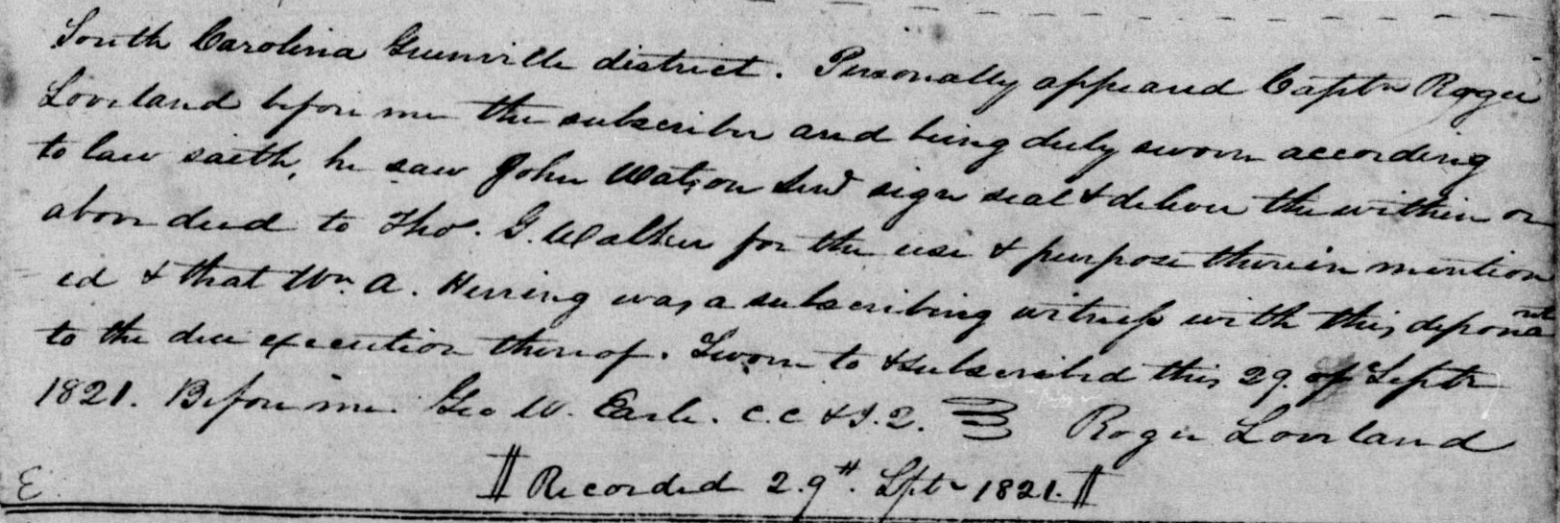 South Carolina Greenville district. Personally appeared Captn Roger
Loveland before me the subscriber and being duly sworn according
to law saith, he saw John Watson Senr sign seal & deliver the within or
above deed to Tho. G. Walker for the use & purpose therein mention
ed & that Wm A. Herring was a subscribing witness with this deponent
to the due execution thereof. Sworn to & subscribed this 29. of Septr
1821. Before me. Geo W. Earle. C.C & J.Q. Roger Loveland
Recorded 29th. Septr 1821.
E.